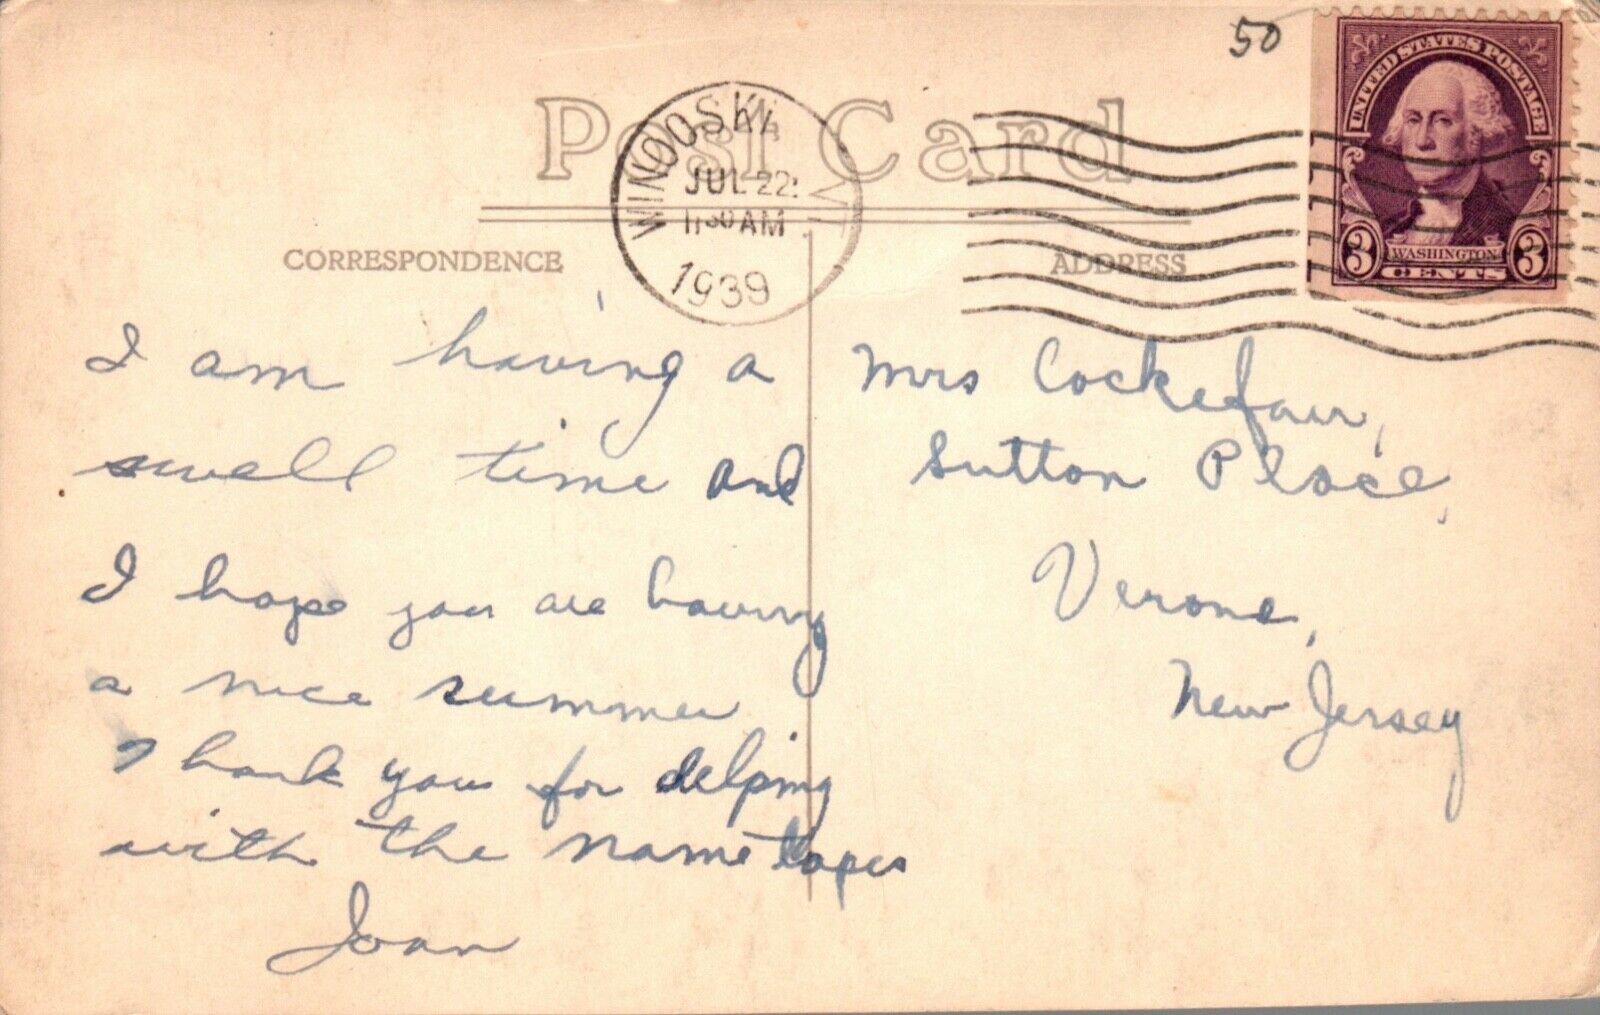 50
UNITED STATES POSTAGE
3 WASHINGTON 3
CENTS
Post Card
WINOOSKI
JUL 22
11 30 AM
1939
VT
CORRESPONDENCE
ADDRESS
I am having a
swell time and
I hope you are having
a nice summer
Thank you for delping
with the name tapes
Joan
Mrs Cockefair,
Sutton Place,
Verona,
New Jersey